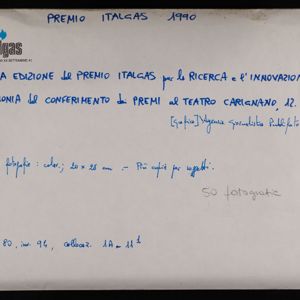 PREMIO ITALGAS 1990
lgas
A EDIZIONE del PREMIO ITALGAS per la RICERCA e l'INNOVAZION
ONIA del CONFERIMENTO dei PREMI al TEATRO CARIGNANO, 12.
[Grafica] Agenzia Giornalistica Publifoto
fotografie : color.; 20 x 28 cm .- Più copie per soggetti.
50 fotografie
80, inv. 94, collocaz. 1A - 11